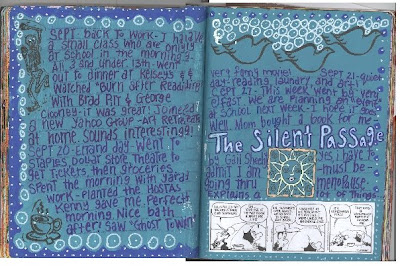 SEPT. BACK TO WORK - I have
a small class who are only
at School in the mornings -
All 3 and under. 13th - went
out to dinner at Kelseys &
Watched "Burn after Reading"
With Brad Pitt & George
Clooney - it was great! Joined
a new Yahoo Group - Art Retreats
at home. Sounds interesting!
Sept 20 - Errand day - Went to
Staples, Dollar Store, Theatre to
get Tickets, then groceries.
Spent the morning with yard
work - planted the HOSTAS
Kenny gave me. Perfect
morning. Nice bath
after! Saw "Ghost Town"
very funny movie! Sept. 21 - quiet
day - reading, laundry, and art!
Sept 27 - This week went by very
fast. We are planning an event
at School next week. Hope it goes
Well. Mom bought a book for me -
The Silent Passage
by Gail Sheehy
yes, I have it
damn it I am
must be
going thru
menopause
Explains a
lot of Things